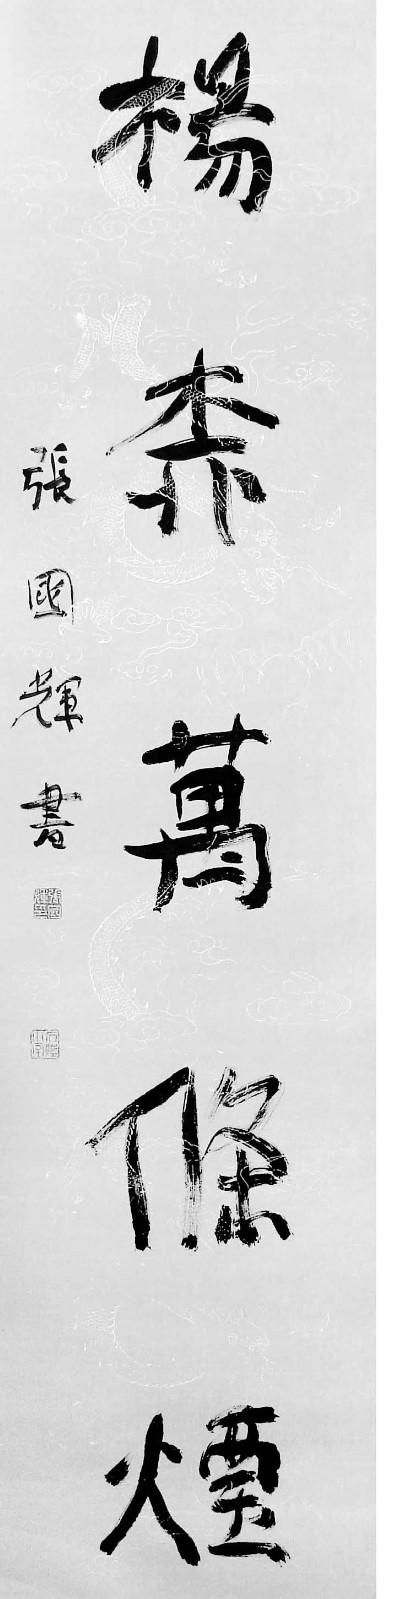 楊柳萬條煙
張國輝書